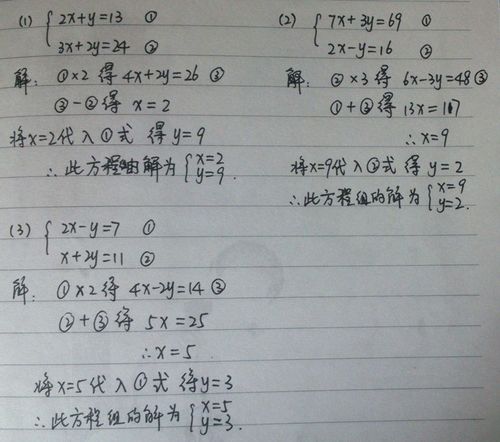 (1) { 2x+y=13 ①
3x+2y=24 ②
解: ①×2 得 4x+2y=26 ③
③-②得 x=2
将x=2代入①式 得y=9
∴此方程的解为 { x=2
y=9.
(2) { 7x+3y=69 ①
2x-y=16 ②
解: ②×3 得 6x-3y=48 ③
①+③得 13x=117
∴x=9
将x=9代入②式 得 y=2
∴此方程组的解为 { x=9
y=2.
(3) { 2x-y=7 ①
x+2y=11 ②
解: ①×2 得 4x-2y=14 ③
②+③得 5x=25
∴x=5
将x=5代入①式 得y=3
∴此方程组的解为 { x=5
y=3.